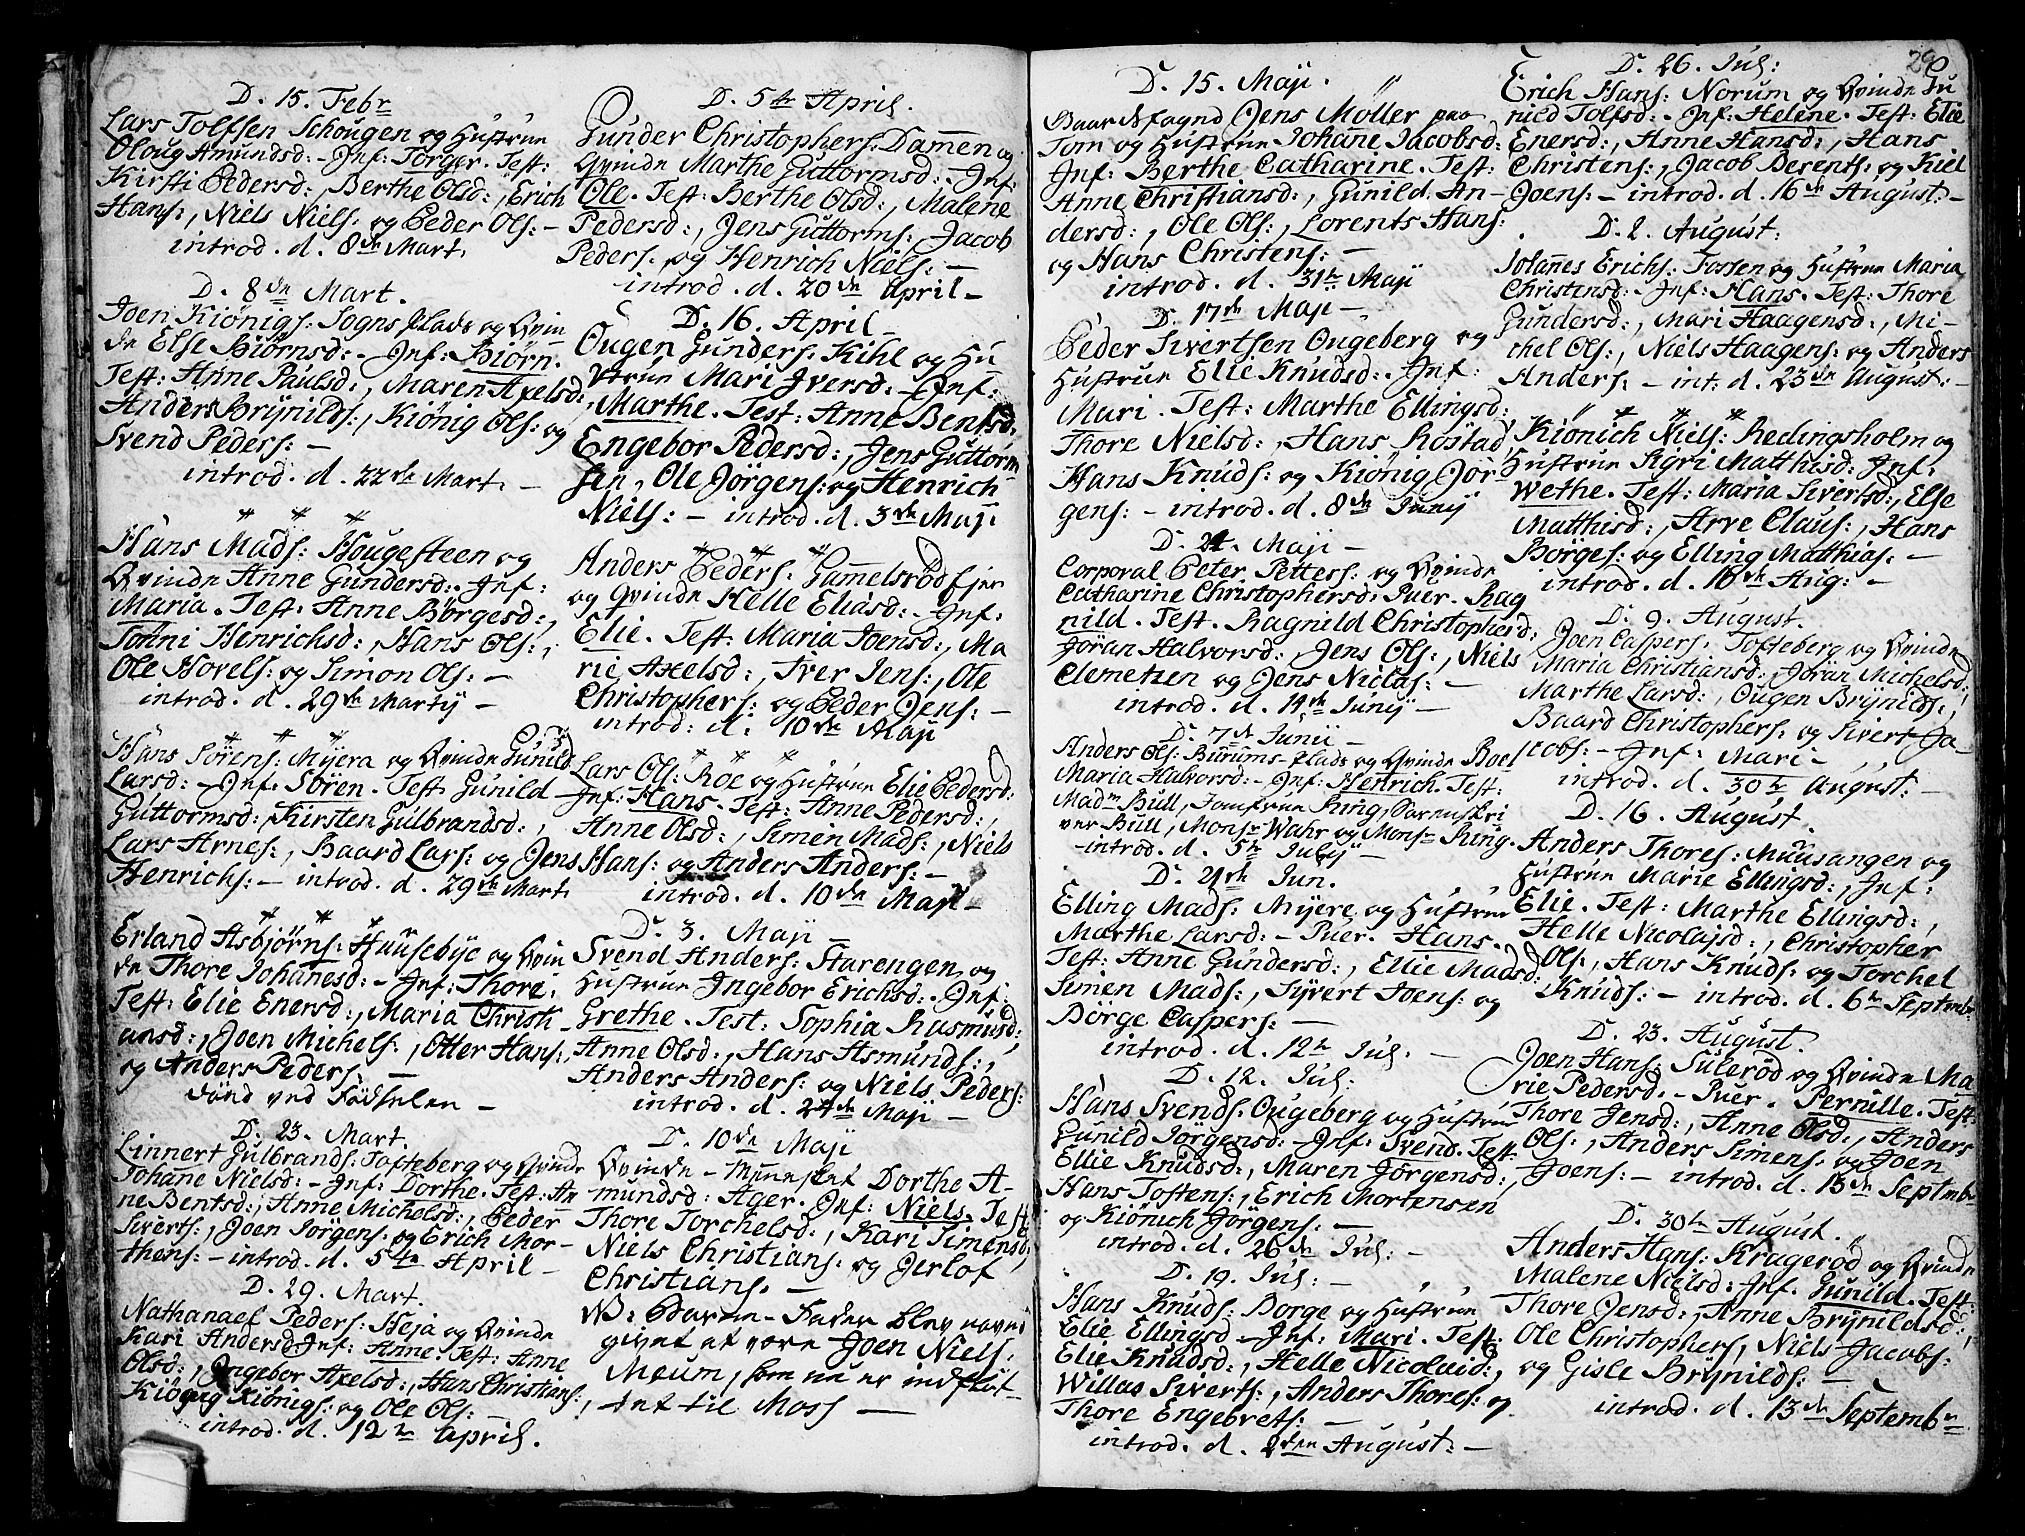 D. 15. Febr
Lars Tolfsen Schougen og Hustrue
Oloug Amundsd: - Inf: Torger. Test:
Kirsti Pedersd:, Berthe Olsd:, Erich
Hans:, Niels Niels: og Peder Ols: -
introd. d. 8de Mart.
D. 8de Mart.
Joen Kiönigs: Sogns Plads og Qvin
de Else Biörnsd: - Inf: Biörn.
Test: Anne Paulsd:, Maren Axelsd:,
Anders Brÿnilds:, Kiönig Ols: og
Svend Peders: -
introd. d. 22de Mart. -
Hans Mads: Hougesteen og
Qvinde Anne Gundersd: - Inf:
Maria. Test: Anne Börgesd:,
Tonni Henrichsd:, Hans Ols:,
Ole Hovels: og Simon Ols: -
introd. d. 29de Martÿ -
Hans Sörens: Mÿera og Qvinde Gunild
Larsd: - Inf: Sören. Test: Gunild
Guttormsd:, Kirsten Gulbrandsd:,
Lars Arnes:, Baard Lars: og Jens
Henrichs: - introd. d. 29de Mart.
Erland Asbjörns: Huusebÿe og Qvin
de Thore Johanesd: - Inf: Thore.
Test: Elie Enersd:, Maria Christi
ansd:, Joen Michels:, Otter Hans:,
og Anders Peders: -
dönd ved Födselen -
D. 23. Mart.
Linnert Gulbrands: Tofteberg og Qvinde
Johane Nielsd: - Inf: Dorthe. Test: An
ne Bentsd:, Anne Michelsd:, Peder
Siverts:, Joen Jörgens: og Erich Mor-
thens: - introd. d. 5te April -
D. 29. Mart.
Nathanael Peders: Heja og Qvinde
Kari Andersd: Inf: Anne. Test: Anne
Olsd:, Ingebor Axelsd:, Hans Christians:,
Kiönig Kiönigs: og Ole Ols: -
introd. d. 12te April.
D. 5te April.
Gunder Christophers: Damen og
Qvinde Marthe Guttormsd: - Inf:
Ole. Test: Berthe Olsd:, Malene
Pedersd:, Jens Guttorms:, Jacob
Peders: og Henrich Niels: -
introd. d. 20de April -
D. 16. April -
Ougen Gunders: Kihl og Hu
strue Mari Iversd: - Inf:
Marthe. Test: Anne Bentsd:,
Engebor Pedersd:, Jens Guttorm
sen, Ole Jörgens: og Henrich
Niels: - introd. d. 3de Maji
Anders Peders: Gamelsrödfjer
og Qvinde Helle Eliasd: - Inf:
Elie. Test: Maria Joensd:, Ma
rie Axelsd:, Iver Jens:, Ole
Christophers: og Peder Jens: -
introd: d. 10de Maji
Lars Ols: Roe og Hustrue Elie Pedersd:
Inf: Hans. Test: Anne Pedersd:,
Anne Olsd:, Simen Mads:, Niels
Hans: og Anders Anders: -
introd. d. 10de Maji -
D. 3. Maji -
Svend Anders: Starengen og
Hustrue Ingebor Erichsd: - Inf:
Grethe. Test: Sophia Rasmusd:,
Anne Olsd:, Hans Asmunds:,
Anders Anders: og Niels Peders:
introd. d. 24de Maji -
D. 10de Maji
Qvinde-Mennesket Dorthe A-
mundsd: Ager. Inf: Niels. Test:
Thore Torchelsd:, Kari Simensd:,
Niels Christians: og Jerlof
Christians: -
NB: Barne-Fader blev navn
givet at være Joen Niels:
Meum, som nu er indflöt-
tet til Moss -
29
D. 15. Maji.
Baardsfogud Jens Möller paa
Tom og Hustrue Johane Jacobsd:
Inf: Berthe Catharine. Test:
Anne Christiansd:, Gunild An-
dersd:, Ole Ols:, Lorents Hans:
og Hans Christens: -
introd. d. 31te Maji
D. 17de Maji -
Peder Sivertsen Ougeberg og
Hustrue Elie Knudsd: - Inf:
Mari. Test: Marthe Ellingsd:,
Thore Nielsd:, Hans Röstad,
Hans Knuds: og Kiönig Jör
gens: - introd. d. 8de Junij
D. 24. Maji -
Corporal Peter Petters: og Qvinde
Catharine Christophersd: Puer. Rag
nild. Test. Ragnild Christophersd:
Jöran Halvorsd:, Jens Ols:, Niels
Clemetzen og Jens Niclas: -
introd. d. 14de Junij -
D. 7de Junii -
Anders Ols: Burums-Plads og Qvinde Boel
Maria Halvorsd: - Inf: Henrich. Test:
Madm Bull, Jomfrue Ring, Sorenskri
ver Bull, Monsr Wahr og Monsr Ring.
introd. d. 5te Julij -
D. 21de Jun.
Elling Mads: Mÿere og Hustrue
Marthe Larsd: - Puer. Hans.
Test: Anne Gundersd:, Ellie Madsd:
Simen Mads:, Syvert Joens: og
Börge Caspers: -
introd. d. 12te Jul: -
D. 12. Jul:
Hans Svends: Ougeberg og Hustrue
Gunild Jörgensd: - Inf: Svend. Test:
Ellie Knudsd:, Maren Jörgensd:,
Hans Tostens:, Erich Mortensen
og Kiönich Jörgens: -
introd. d. 26de Jul: -
D. 19. Jul: -
Hans Knuds: Borge og Hustrue
Elie Ellingsd: - Inf: Mari. Test:
Elie Knudsd:, Helle Nicolaid:,
Willas Siverts:, Anders Thores: og
Thore Engebrets: -
introd. d. 2den August: -
D. 26. Jul:
Erich Hans: Norum og Qvinde Gu
nild Tolfsd: - Inf: Helene. Test: Elie
Enersd:, Anne Hansd:, Hans
Christens:, Jacob Berents: og Kiel
Joens: - introd. d. 16de August: -
D. 2. August:
Johannes Erichs: Fossen og Hustrue Maria
Christensd: - Inf: Hans. Test: Thore
Gundersd:, Mari Haagensd:, Mi-
chel Ols:, Niels Haagens: og Anders
Anders: - int: d. 23de August: -
Kiönich Niels: Redingsholm og
Hustrue Sigri Matthisd: Inf:
Wethe. Test: Maria Sivertsd:, Else
Matthisd:, Arve Claus:, Hans
Börges: og Elling Matthias: -
introd. d. 16de Aug: -
D. 9. August.
Joen Caspers: Tofteberg og Qvinde
Maria Christiansd:, Jöran Michelsd:,
Marthe Larsd:, Ougen Brÿnilds:,
Baard Christophers: og Sivert Ja-
cobs: - Inf: Mari -
introd. d. 30te August: -
D. 16. August.
Anders Thores: Muusangen og
Hustrue Marie Ellingsd:, Inf:
Elie. Test: Marthe Ellingsd:,
Helle Nicolajsd:, Christopher
Ols:, Hans Knuds: og Torchel
Knuds: - introd. d. 6te Septembr
D. 23. August.
Joen Hans: Suleröd og Qvinde Ma
rie Pedersd: - Puer. Pernille. Test:
Thore Jensd:, Anne Olsd:, Anders
Ols:, Anders Simens: og Joen
Joens: - introd. d. 13de Septembr
D. 30te August.
Anders Hans: Krageröd og Qvinde
Malene Nielsd: Inf. Gunild. Test:
Thore Jensd:, Anne Brÿnildsd:,
Ole Christophers:, Niels Jacobs:
og Gisle Brÿnilds: -
introd. d. 13de Septembr